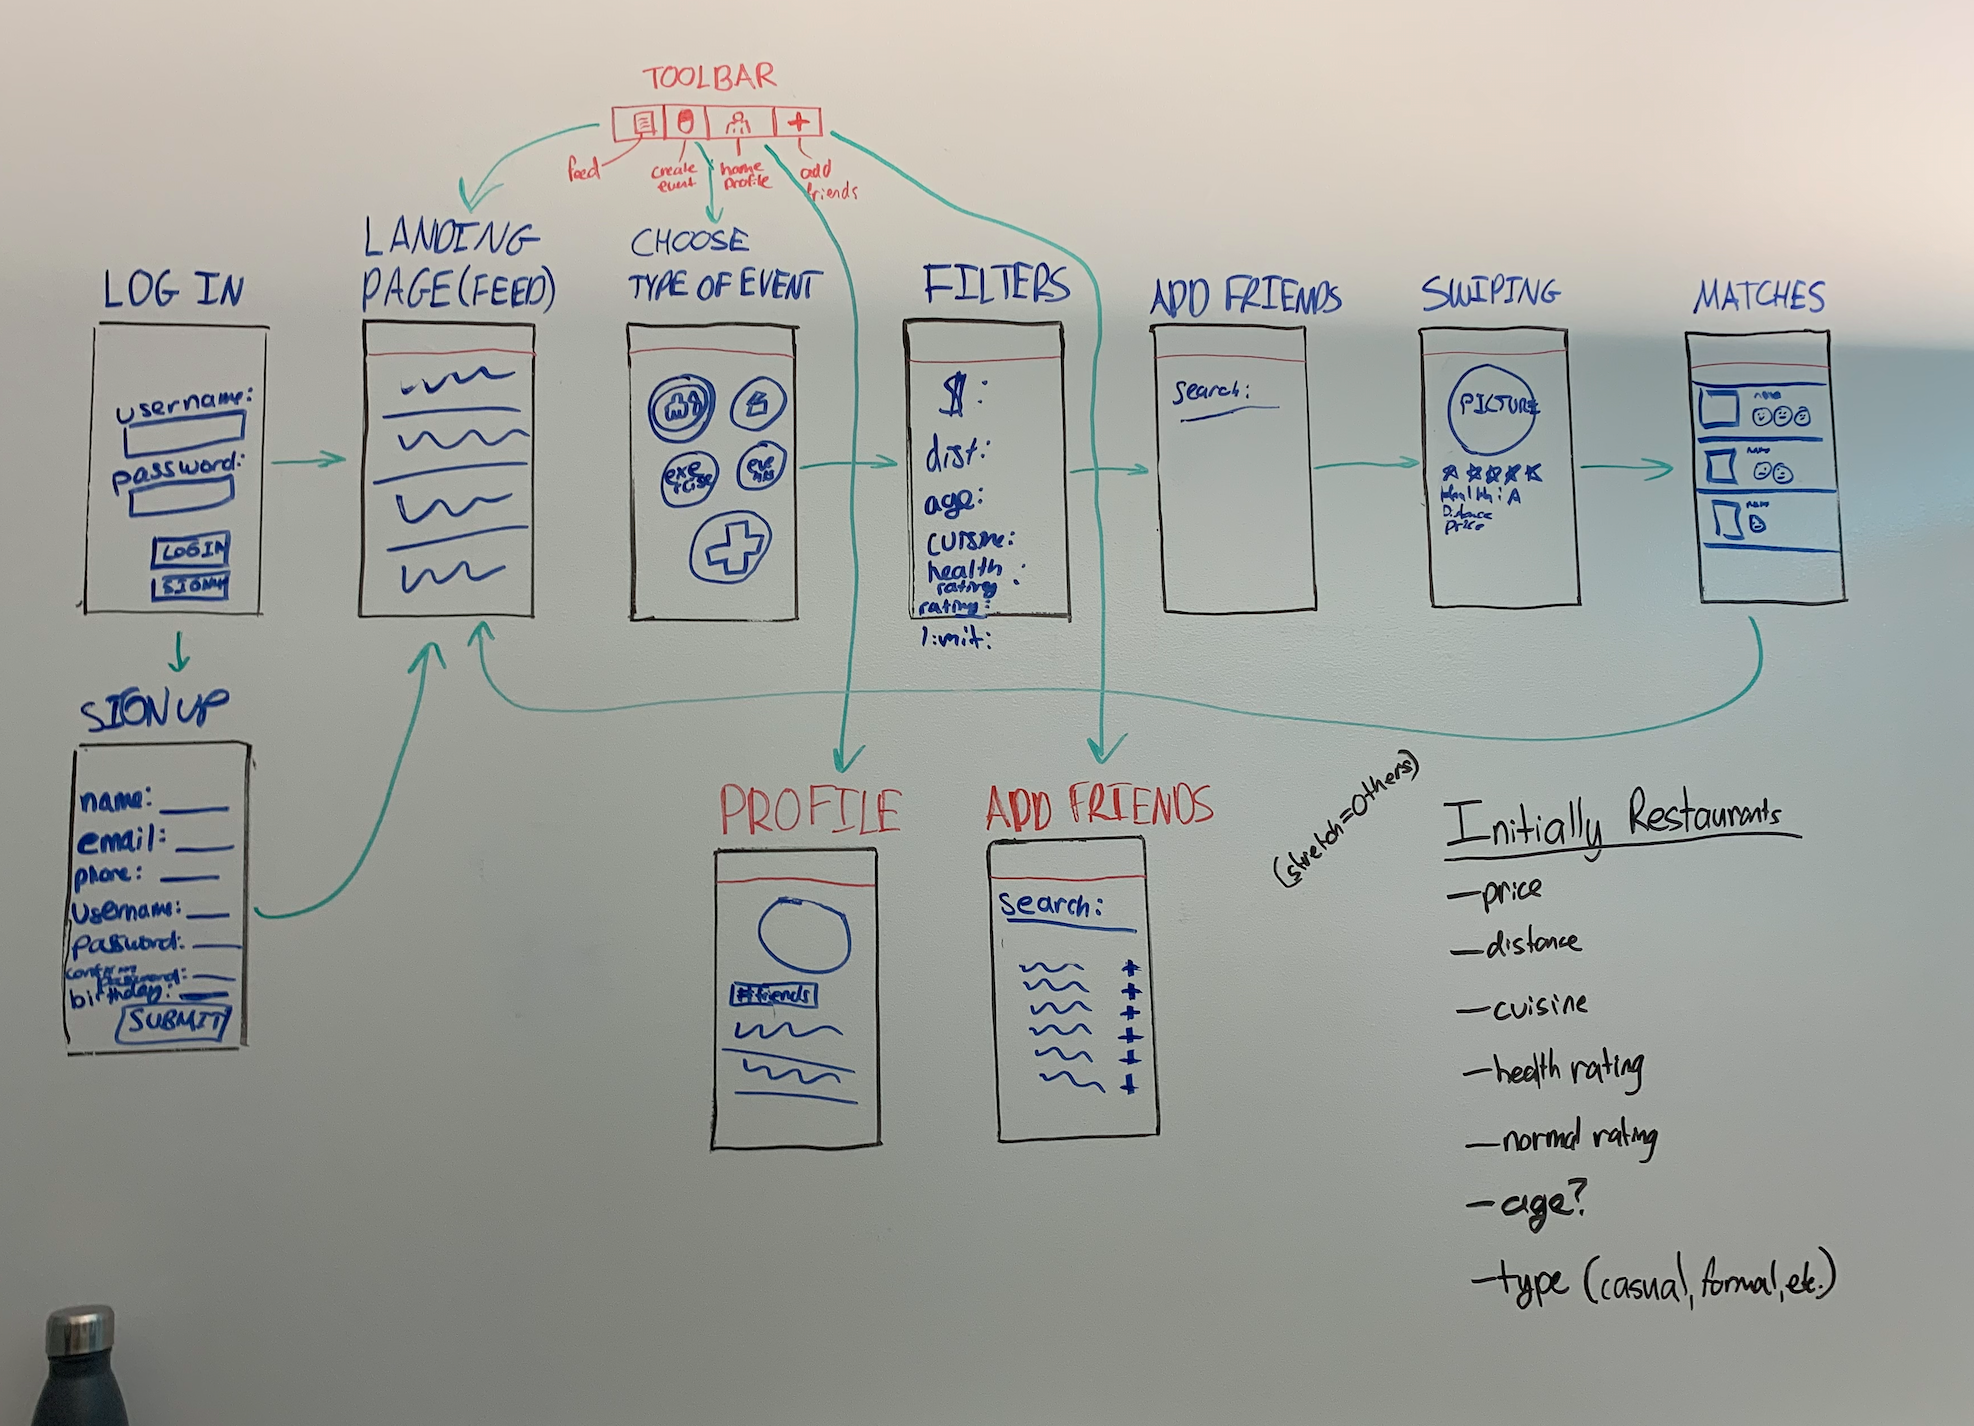 TOOLBAR
feed
create
event
home
profile
add
friends
LOG IN
username:
password:
LOGIN
SIGNUP
LANDING
PAGE(FEED)
CHOOSE
TYPE OF EVENT
exe
rcise
eve
nts
FILTERS
$:
dist:
age:
cuisine:
health
rating:
rating:
limit:
ADD FRIENDS
search:
SWIPING
PICTURE
Health: A
Distance
Price
MATCHES
SIGN UP
name:
email:
phone:
Username:
Password:
confirm
password:
birthday:
SUBMIT
PROFILE
#friends
ADD FRIENDS
search:
(stretch=Others)
Initially Restaurants
—price
—distance
—cuisine
—health rating
—normal rating
—age?
—type (casual, formal, etc.)